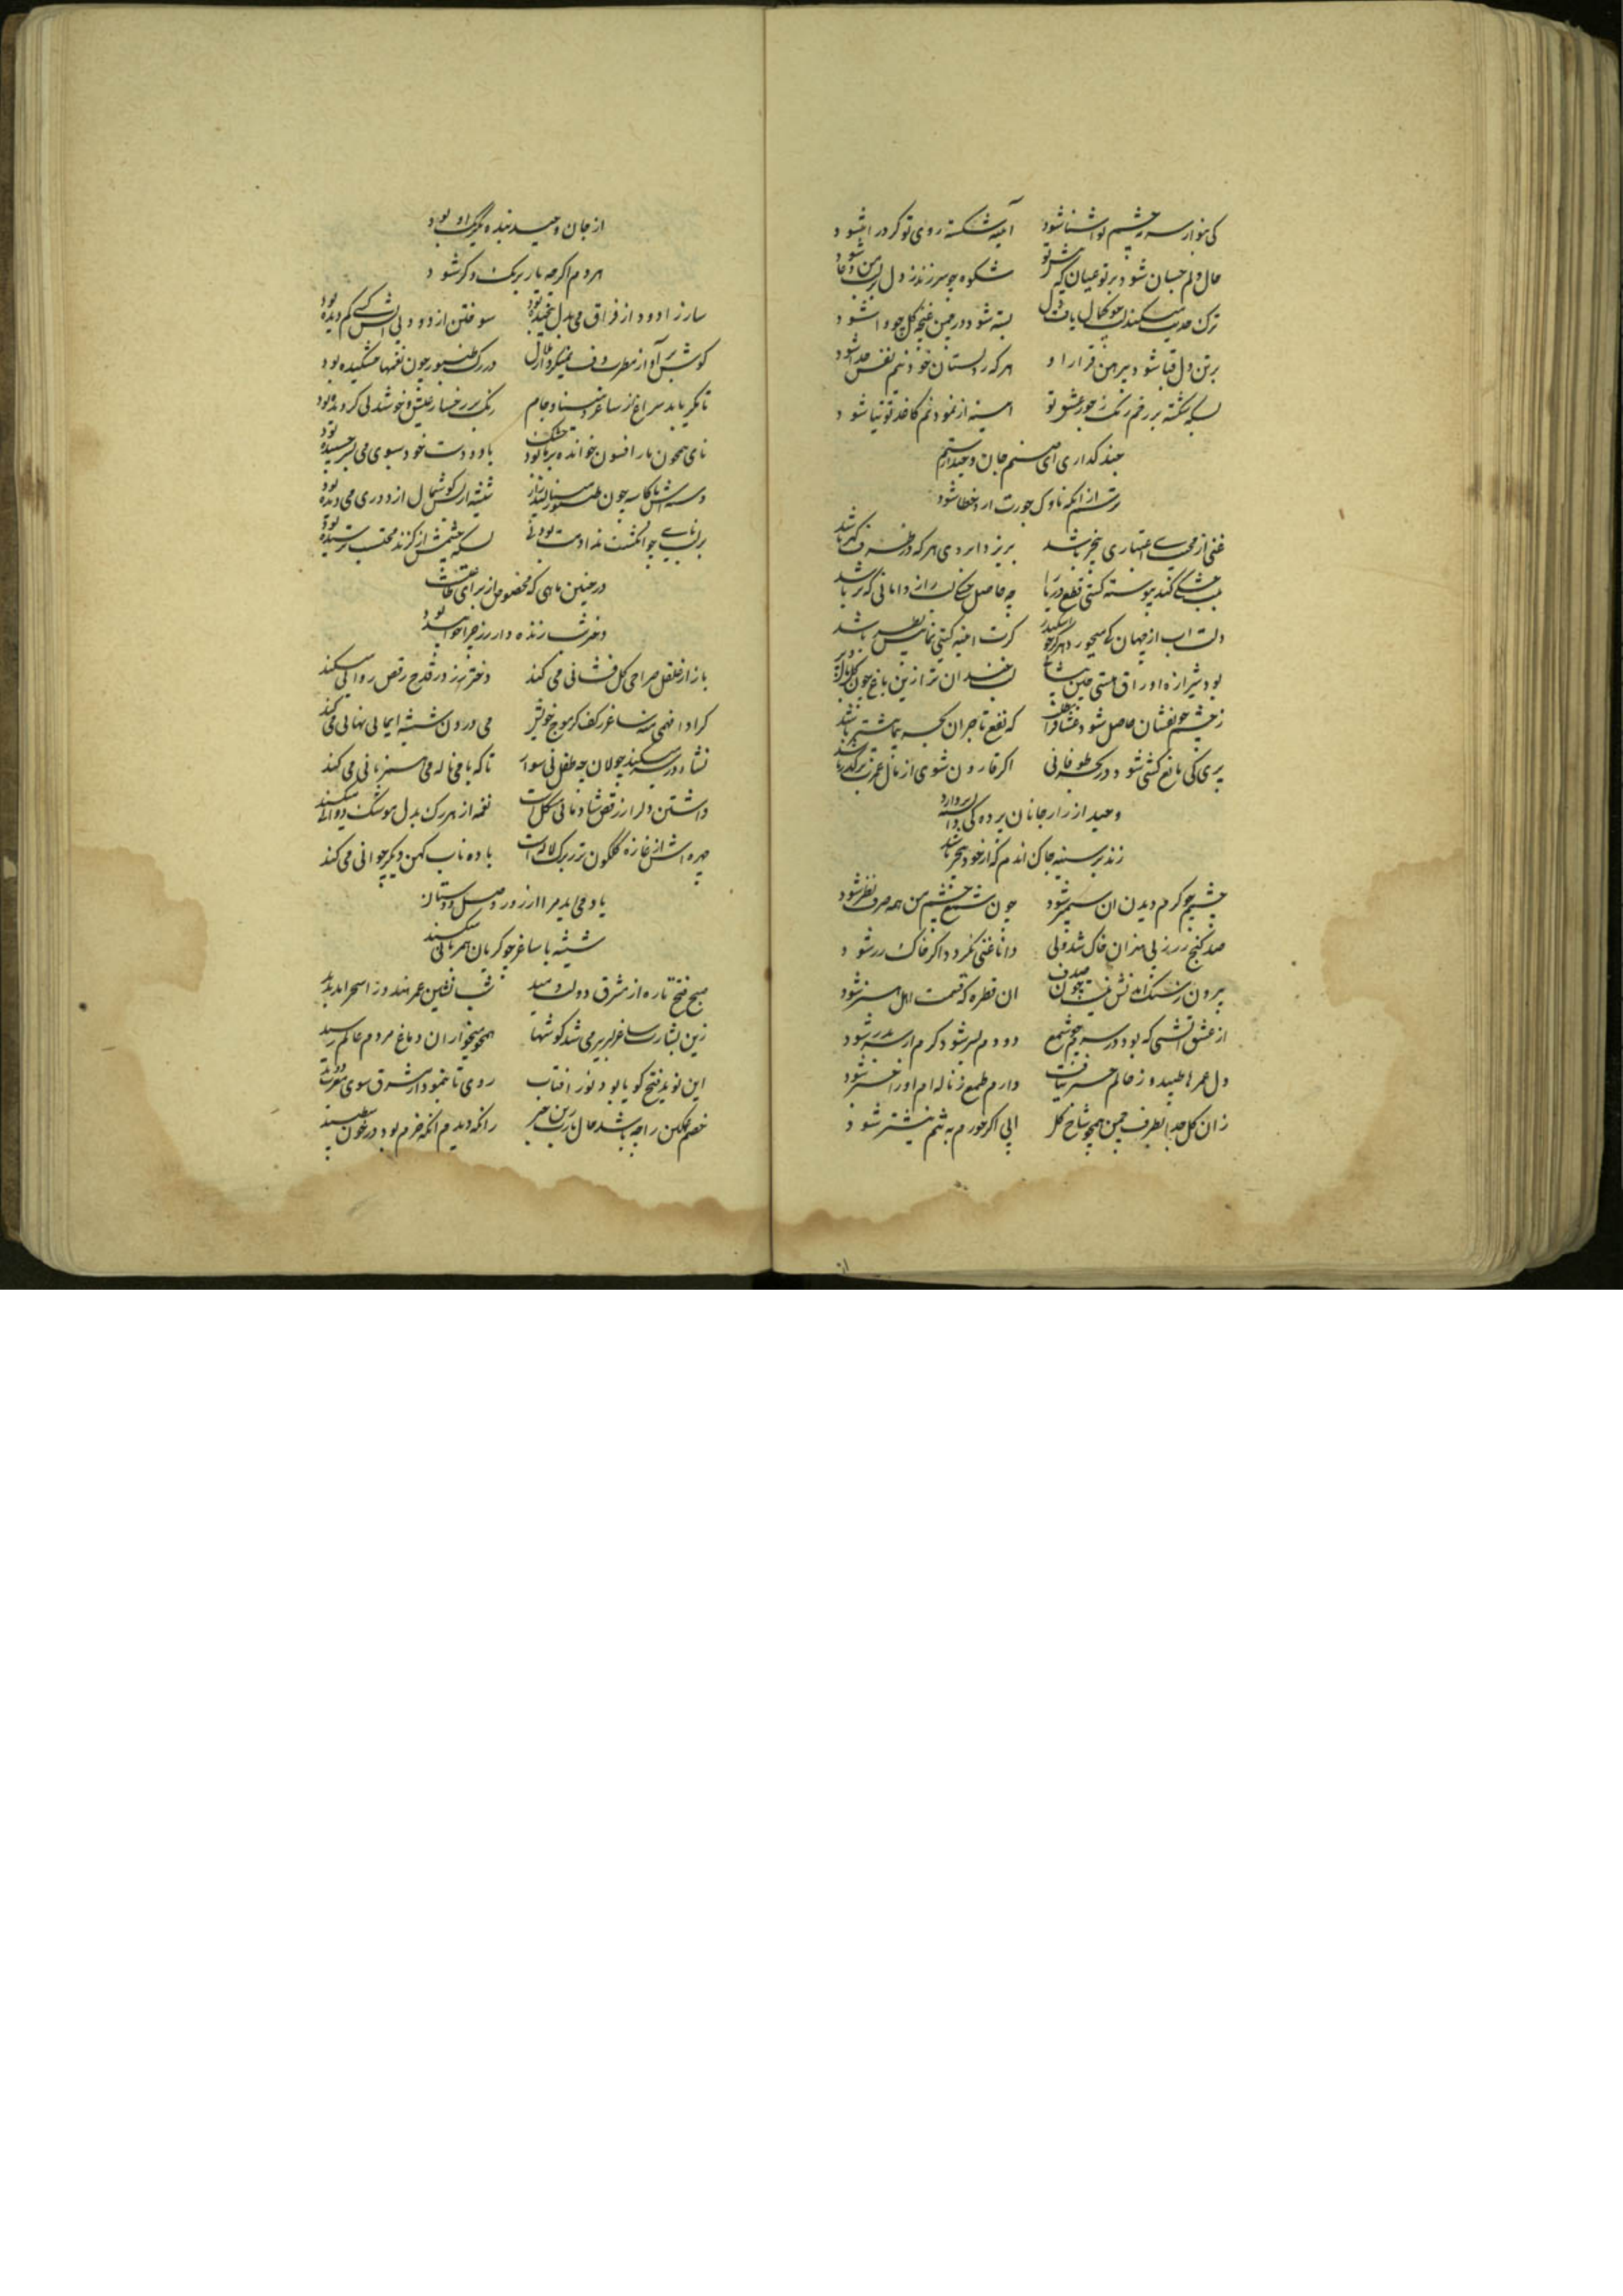 کی بتو از سر چشم تو آشنا شود آینه شکسته روی تو کر در
حال دلم چسان شود بر تو عیان که شکوه چو سر زند ز دل
ترک حدیث میکند لب چو کمال یافت دل بسته شود در چمن غنچه کل چو وا شود
بر تن دل قبا شود پیرهن قرار او هر که ز دلستان خود نیم نفس جدا شود
بسکه شکسته بر رخم رنک ز جور عشق تو آینه از نمود نم کاغذ توتیا شود
چند کذاری ای صنم جان وحید در ستم
ترسم از انکه ناوک جورت ار خطا شود
غنی از محنت بی اعتباری بیخبر باشد بریزد آبروی هر که در ظرف کهر باشد
بخشکی کند پیوسته کشتی قطع دریا چه حاصل خشک لب را از دامانی که تر باشد
دلت آب از جهان کی میخورد هر کز چو اسکندر کرت آینه کیتی نما پیش نظر باشد
بود شیرازه اوراق هستی چین پیشانی لب خندان تر ازین باغ چون کل
ز چشم خونفشان حاصل شود عشاق را که نفع تاجران بحر بیشتر باشد
پری کی مانع کشتی شود در بحر طوفانی اکر قارون شوی از مال عمرت در کذر باشد
وحید از راز جانان پرده کی
زند بر سینه چاک اندم که از خود بیخبر باشد
چشمم چو کرم دیدن آن سیمبر شود چون شمع چشم من همه صرف نظر شود
صد کنج زر ز بی هنران خاک شد ولی دانا غنی نکردد اکر خاک زر شود
بیرون ز سنک آمدنش نیست چون صدف آن قطره که قسمت اهل هنر شود
از عشق آتشی که بود در سرم چو شمع دودم بسر شود کرم از سر بدر شود
دل عمرها طپید و ز حالم خبر نیافت دارم طمع ز ناله ام او را خبر شود
زان کل جدا بطرف چمن همچو شاخ کل آبی اکر خورم به تنم نیشتر شود
از جان وحید بنده یکرنک او بود
هر دم اکر چه یار برنک دکر شود
ساز زا درد از فراق می بدل پیچیده بود سوختن از دود بی آتش کسی کم دیده بود
کوش بر آواز مطرب دف نمیکرد از ملال در رک طنبور چون نغمها خشکیده بود
تا مکر یابد سراغی از ساغر و مینا و جام رنک بر رخسار عیش و خوشدلی کردیده بود
نای همچون مار افسون خوانده بر جا خشک بود با دو دست خود سبوی می بسر چسبیده بود
دسته اش تا کاسه چون طنبور مینالید زار شیشه از بس کوشمال از دوری می دیده بود
بر لب نایی چو انکشت ندامت بود نی بسکه چشمش از کزند محتسب ترسیده بود
در چنین ماهی که مخصوص از برای طاعتست
دخترت شب زنده دار رز چرا خوابیده بود
باز از قلقل صراحی کل فشانی می کند دختر رز در قدح رقص روانی میکند
کر ادا فهمی منه ساغر ز کف کز موج خویش می درون شیشه ایمایی نهانی می کند
نشاء در سر میکند جولان چو طفل نی سوار تا که با می ناله نی همزبانی می کند
داشتن دل را ز رقص شادمانی مشکل است نغمه از هر رک بدل موشک دوانی میکند
چهره اش از غازه کلکون تر ز برک لاله است باده ناب کهن دیکر جوانی می کند
یاد می آید مرا از روز وصل دوستان
شیشه با ساغر چو کریان همزبانی میکند
صبح فتح تازه از مشرق دولت دمید شب نشین عمر هندو را سحر آمد پدید
زین بشارت ساغر لبریز می شد کوشها همچو میخواران دماغ مردم عالم رسید
این نوید فتح کویا بود نور آفتاب روی تا بنمود از مشرق سوی مغرب دوید
خصم غمکین را چه باشد حال یا رب زین خبر زانکه دیدم آنکه خرم بود در خون می طپید